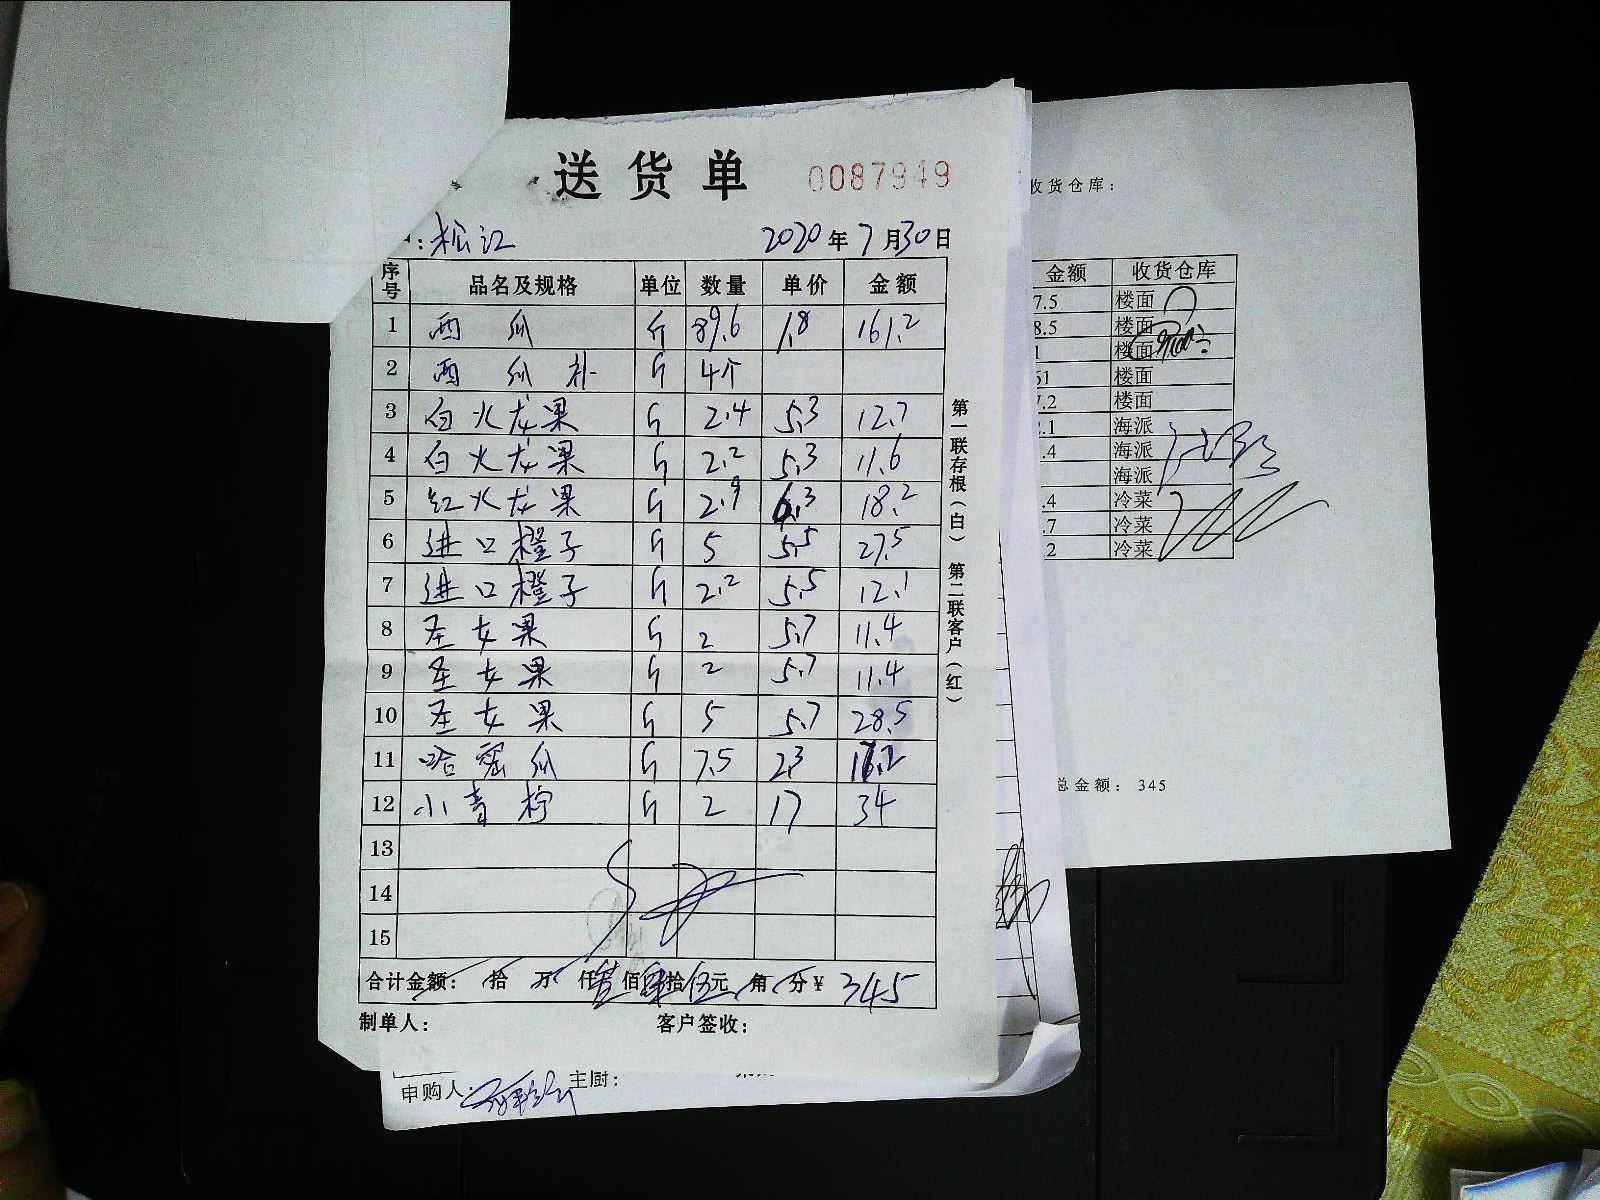 送货单 0087949
: 松江 2020年7月30日
序号 品名及规格 单位 数量 单价 金额
1 西瓜 斤 89.6 1.8 161.2
2 西瓜补 斤 4个
3 白火龙果 斤 2.4 5.3 12.7
4 白火龙果 斤 2.2 5.3 11.6
5 红火龙果 斤 2.9 6.3 18.2
6 进口橙子 斤 5 5.5 27.5
7 进口橙子 斤 2.2 5.5 12.1
8 圣女果 斤 2 5.7 11.4
9 圣女果 斤 2 5.7 11.4
10 圣女果 斤 5 5.7 28.5
11 哈密瓜 斤 7.5 2.3
12 小青柠 斤 2 17 34
13
14
15
合计金额: 拾 万 仟 佰 拾伍元 角 分¥ 345
制单人: 客户签收:
第一联存根(白) 第二联客户(红)
申购人: 主厨:
收货仓库:
金额 收货仓库
7.5 楼面
8.5 楼面
1 楼面
51 楼面
7.2 楼面
2.1 海派
.4 海派
海派
.4 冷菜
.7 冷菜
.2 冷菜
总金额: 345